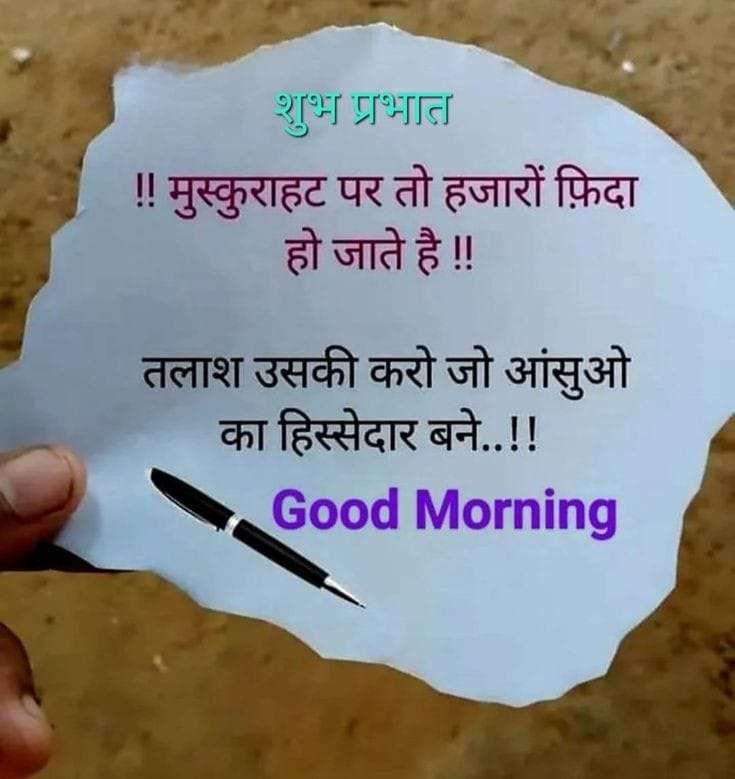 शुभ प्रभात
!! मुस्कुराहट पर तो हजारों फ़िदा
हो जाते है !!
तलाश उसकी करो जो आंसुओ
का हिस्सेदार बने..!!
Good Morning